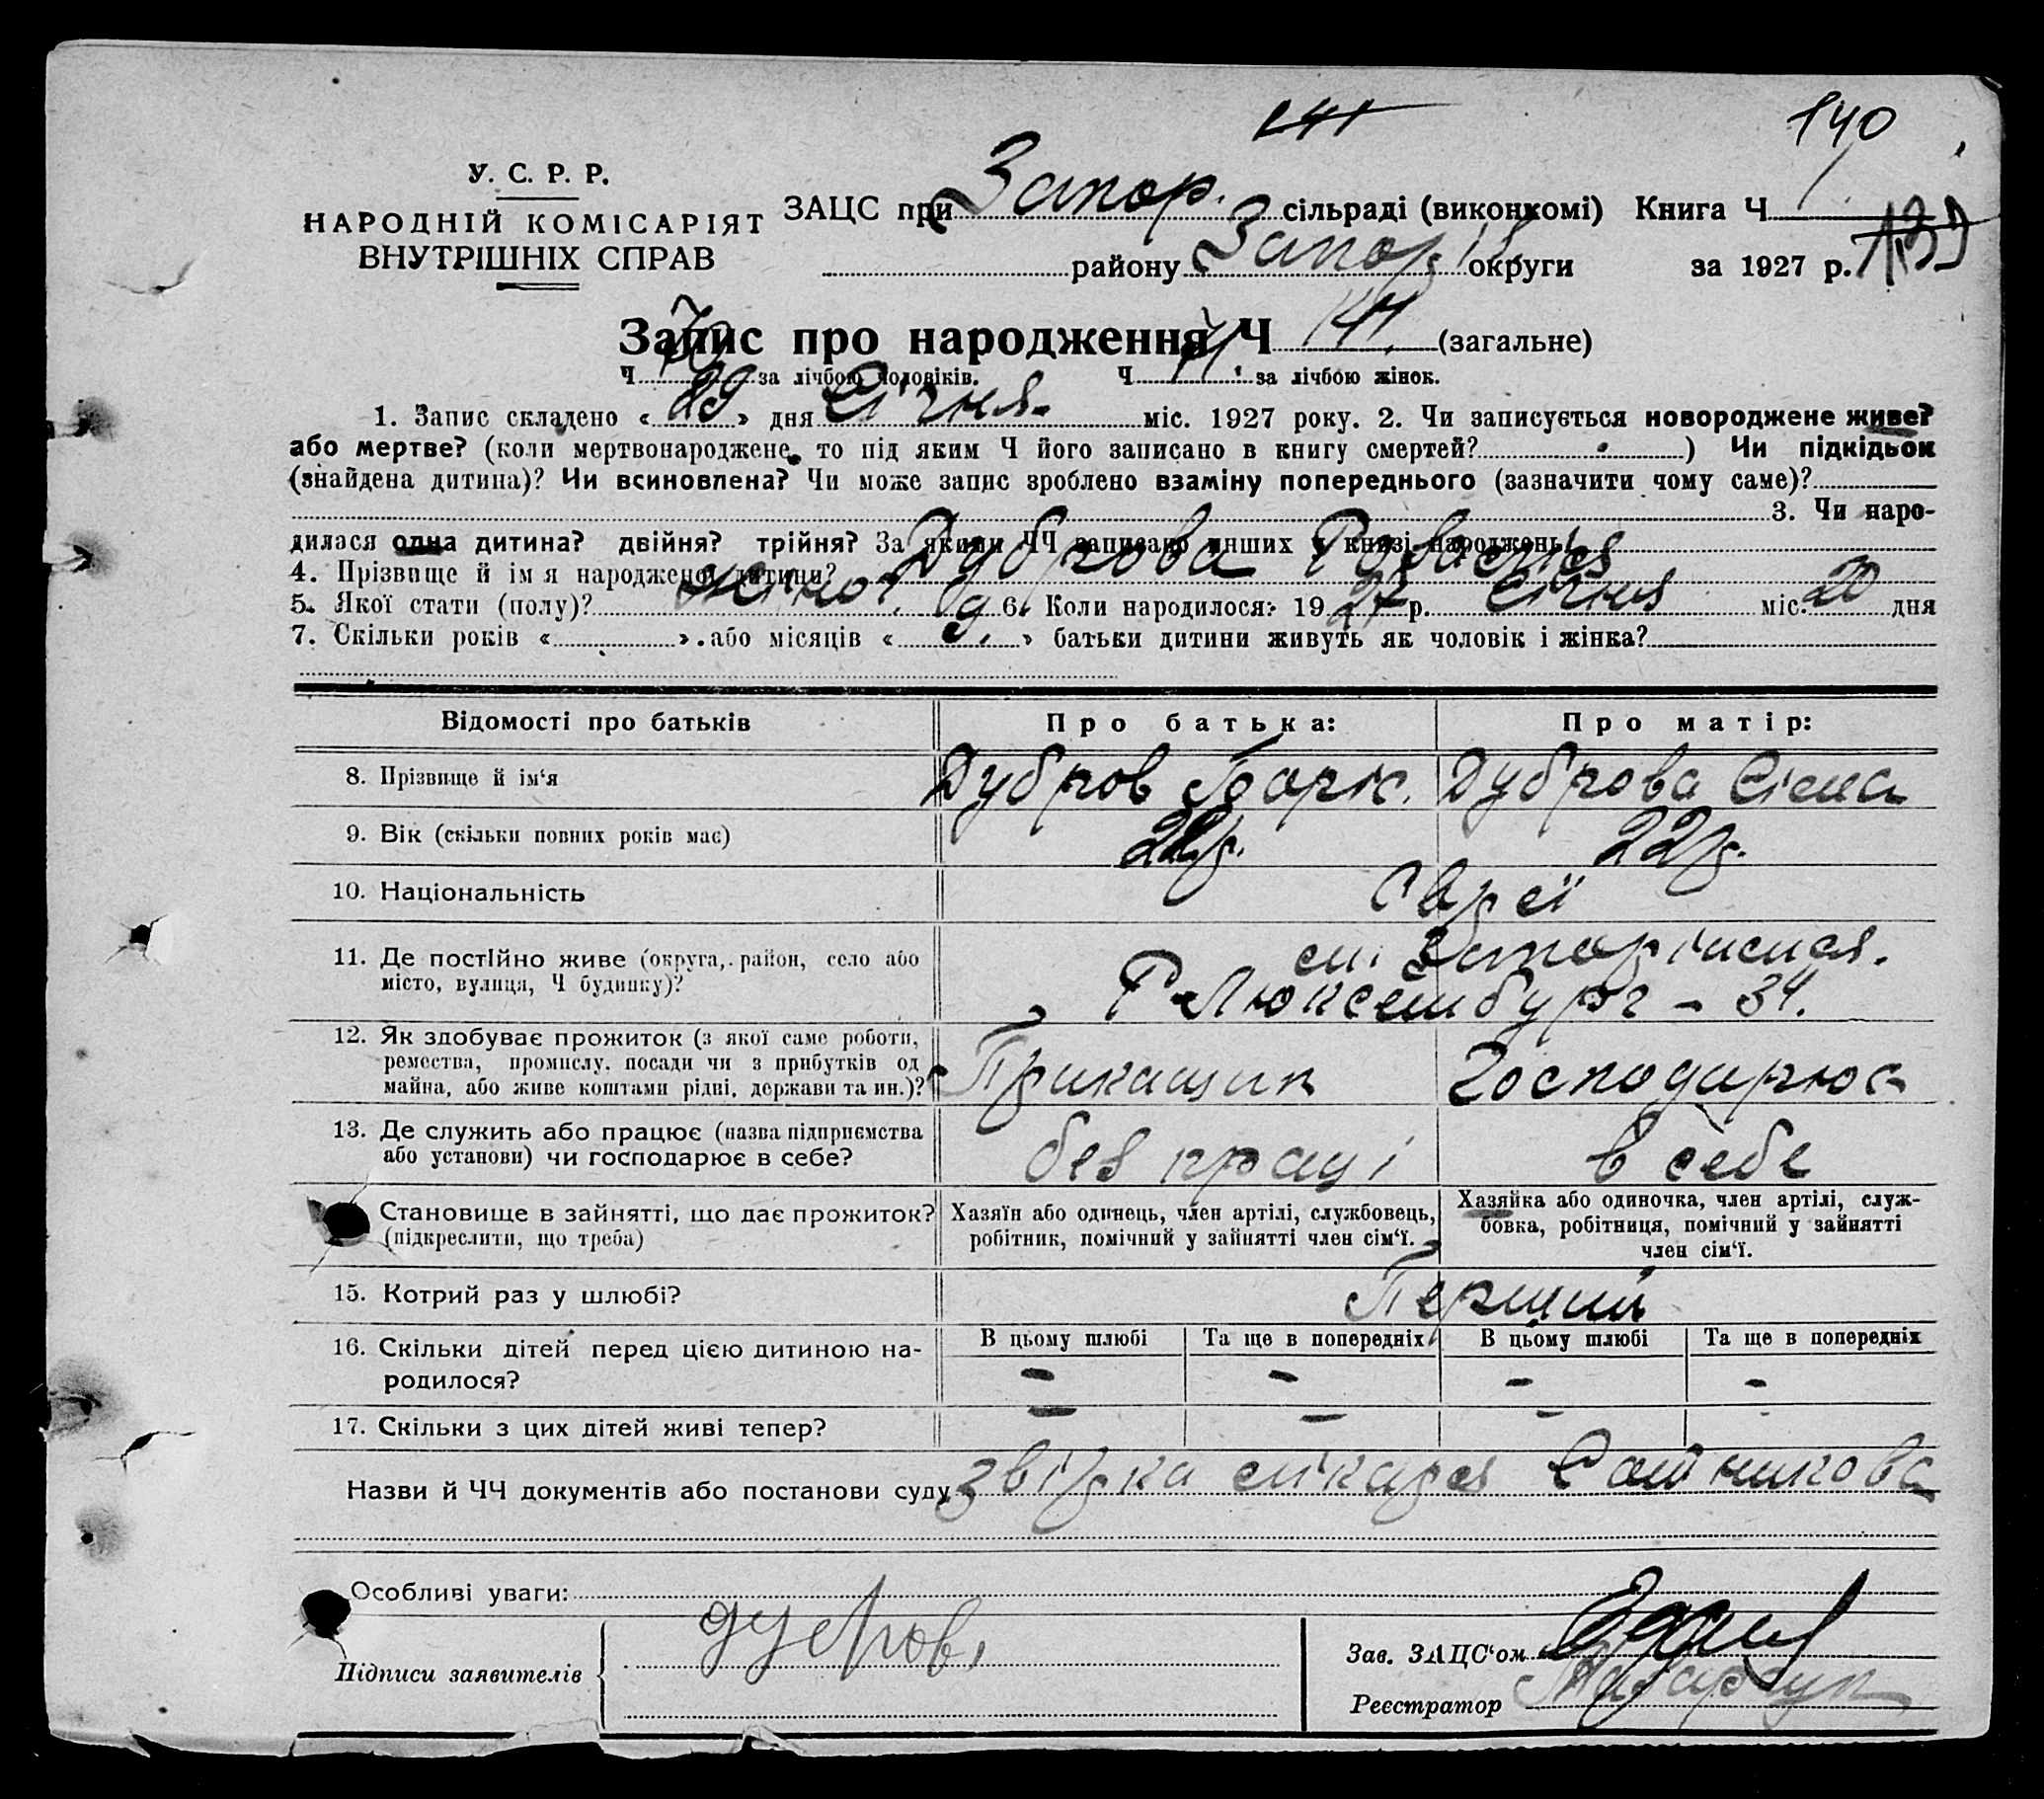 141
140
У. С. Р. Р.
НАРОДНІЙ КОМІСАРІЯТ
ВНУТРІШНІХ СПРАВ
ЗАЦС при Запор. сільраді (виконкомі) Книга Ч 1
району Запоріз округи за 1927 р. 139
Запис про народження Ч 141 (загальне)
Ч 70 за лічбою чоловіків. Ч 71 за лічбою жінок.
1. Запис складено « 29 » дня Січня міс. 1927 року. 2. Чи записується новороджене живе?
або мертве? (коли мертвонароджене, то під яким Ч його записано в книгу смертей? ) Чи підкідьок
(знайдена дитина)? Чи всиновлена? Чи може запис зроблено взаміну попереднього (зазначити чому саме)?
3. Чи наро-
дилася одна дитина? двійня? трійня? За якими ЧЧ записано инших в книзі народжень?
4. Прізвище й ім'я народженої дитини? Дуброва
5. Якої стати (полу)? жіноч. 6. Коли народилося: 1927 р. січня міс. 20 дня
7. Скільки років « » або місяців « 9. » батьки дитини живуть як чоловік і жінка?
Відомості про батьків
Про батька:
Про матір:
8. Прізвище й ім'я
Дубров Борис.
Дуброва
9. Вік (скільки повних років має)
22р.
10. Національність
Євреї
11. Де постійно живе (округа, район, село або
місто, вулиця, Ч будинку)?
м. Запоріжжя.
Р-Люксембург – 34.
12. Як здобуває прожиток (з якої саме роботи,
ремества, промислу, посади чи з прибутків од
майна, або живе коштами рідні, держави та ин.)?
Прикащик
Господарює
13. Де служить або працює (назва підприємства
або установи) чи господарює в себе?
без праці
в себе
Становище в зайнятті, що дає прожиток?
(підкреслити, що треба)
Хазяїн або одинець, член артілі, службовець,
робітник, помічний у зайнятті член сім'ї.
Хазяйка або одиночка, член артілі, служ-
бовка, робітниця, помічний у зайнятті
член сім'ї.
15. Котрий раз у шлюбі?
Перший
16. Скільки дітей перед цією дитиною на-
родилося?
В цьому шлюбі
Та ще в попередніх
В цьому шлюбі
Та ще в попередніх
– – – –
17. Скільки з цих дітей живі тепер?
– – –
Назви й ЧЧ документів або постанови суду звідка лікаря
Особливі уваги:
Підписи заявителів
Дубров.
Зав. ЗАЦС'ом
Реєстратор